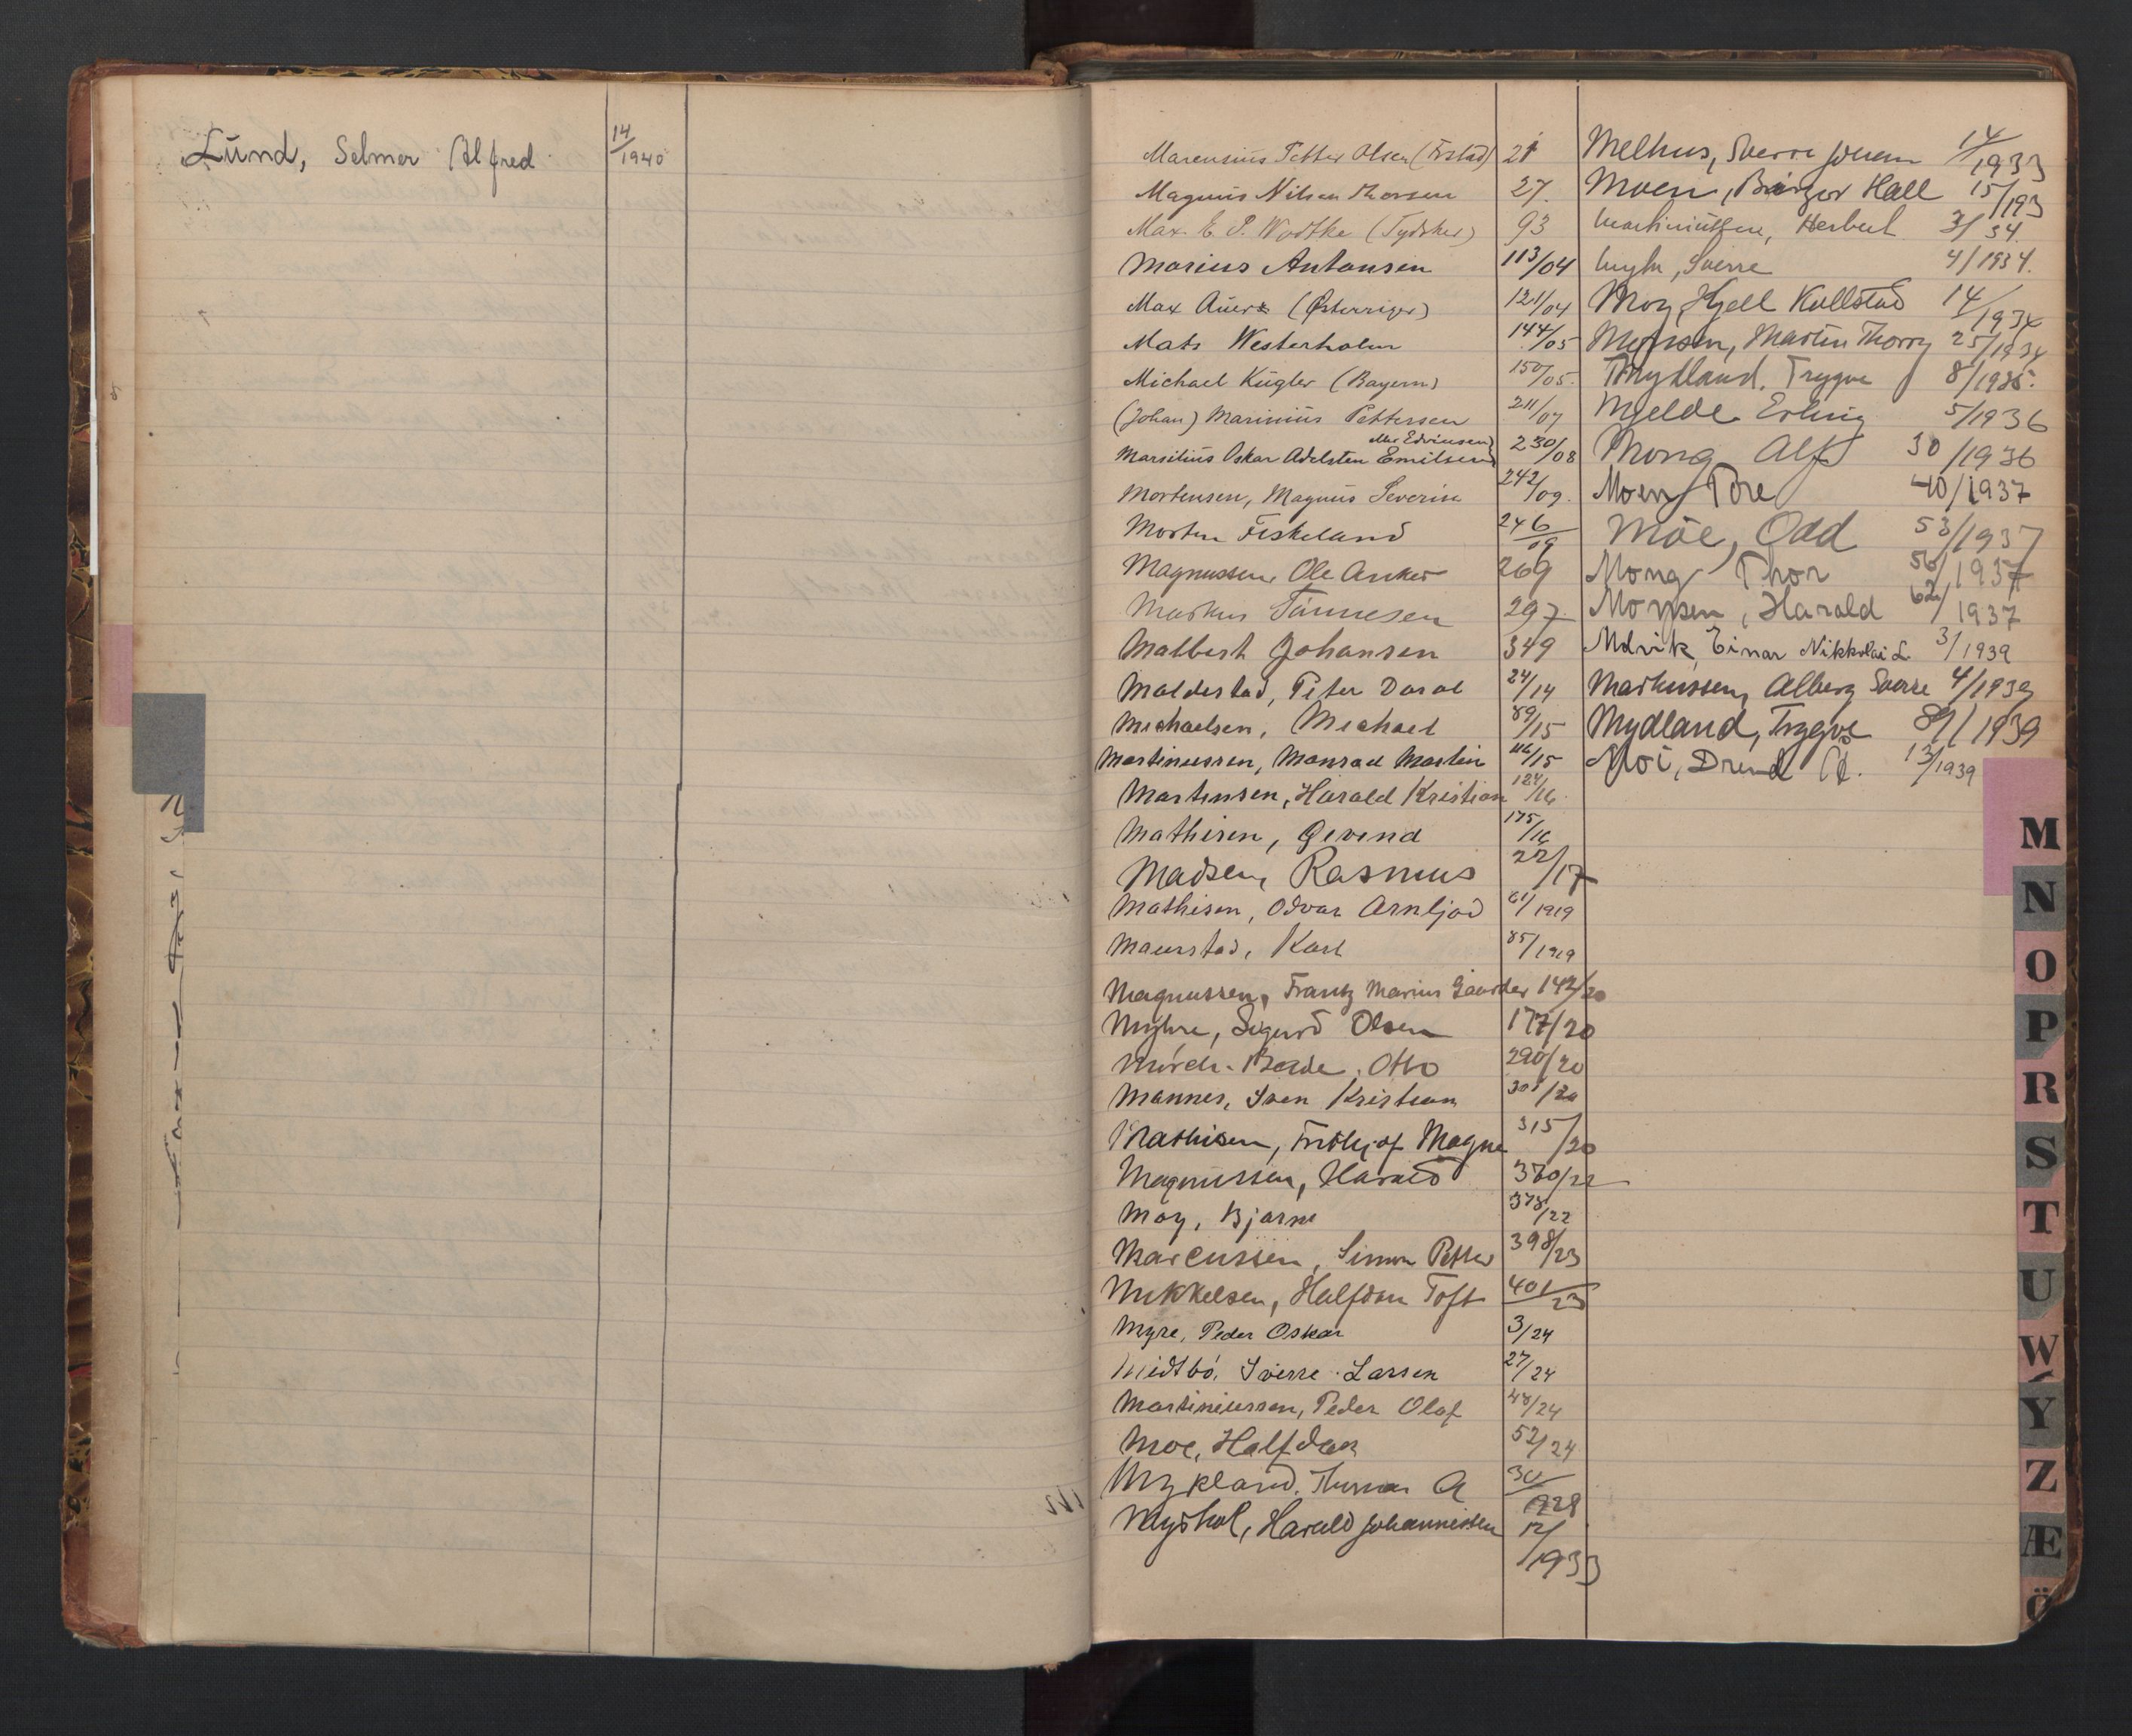 Lund, Selmer Alfred 14/1940
Marensius Petter Olsen (Frstad) 21
Magnus Nilsen Thorsen 27.
Max. E. P. Wodtke (Tydsker) 93
Marius Antonsen 113/04
Max Auer (Østerriger) 121/04
Mats Westerholm 144/05
Michael Kugler (Bayern) 150/05.
(Johan) Marinius Pettersen 211/07
Marsilius Oskar Adelsten Emilsen 230/08
Mortensen, Magnus Severin 242/09.
Morten Fiskeland 246/09
Magnussen, Ole Anker 269
Markus Tønnesen 297
Malbert Johansen 349
Maldestad, Peter Daral 24/14
Michaelsen, Michael 89/15
Martinussen, Monrad Martin 116/15
Martinsen, Harald Kristian 124/16
Mathisen, Gevend 175/16
Madsen, Rasmus 22/17
Mathisen, Odvar Arnljod 61/1919
Maurstad, Karl 85/1919
Magnussen, Frantz Marius Gaarder 142/20
Myhre, Sigurd Olsen 177/20
Mørch- Otto 290/20
Mannes, Sven Kristian 301/20
Mathisen, Fridtjof Magne 315/20
Magnussen, Harald 370/22
Moy, Bjarne 378/22
Marcussen, Simon Petter 398/23
Mikkelsen, Halfdan Toft 401/23
Myre, Peder Oskar 3/24
Midtbö, Sverre Larsen 27/24
Martiniussen, Peder Olaf 48/24
Moe, Halfdan 52/24
Mykland, Thomas A 30/1928
Mydhol, Harald Johannessen 12/1933
Melhus, Sverre Johan 14/1933
Moen, Birger Hall 15/193
Martiniussen, Herbert 3/34.
Sverre 4/1934.
Moy, Kjell Kullstad 14/1934
Monsen, Martin Thorry 25/1934
Mydland, Trygve 8/1935.
Mjelde Erling 5/1936
Mong Alf 30/1936
Moen Tore 40/1937
Möe, Odd 53/1937
Mong Thor 56/1937
Monsen, Harald 62/1937
Molvik, Einar Nikkolai L 3/1939
Markussen, Alberg Sverre 4/1939
Mydland, Trygve 8/1939
Moi, A. 13/1939
M
N
O
P
R
S
T
U
W
Y
Z
Æ
Ö